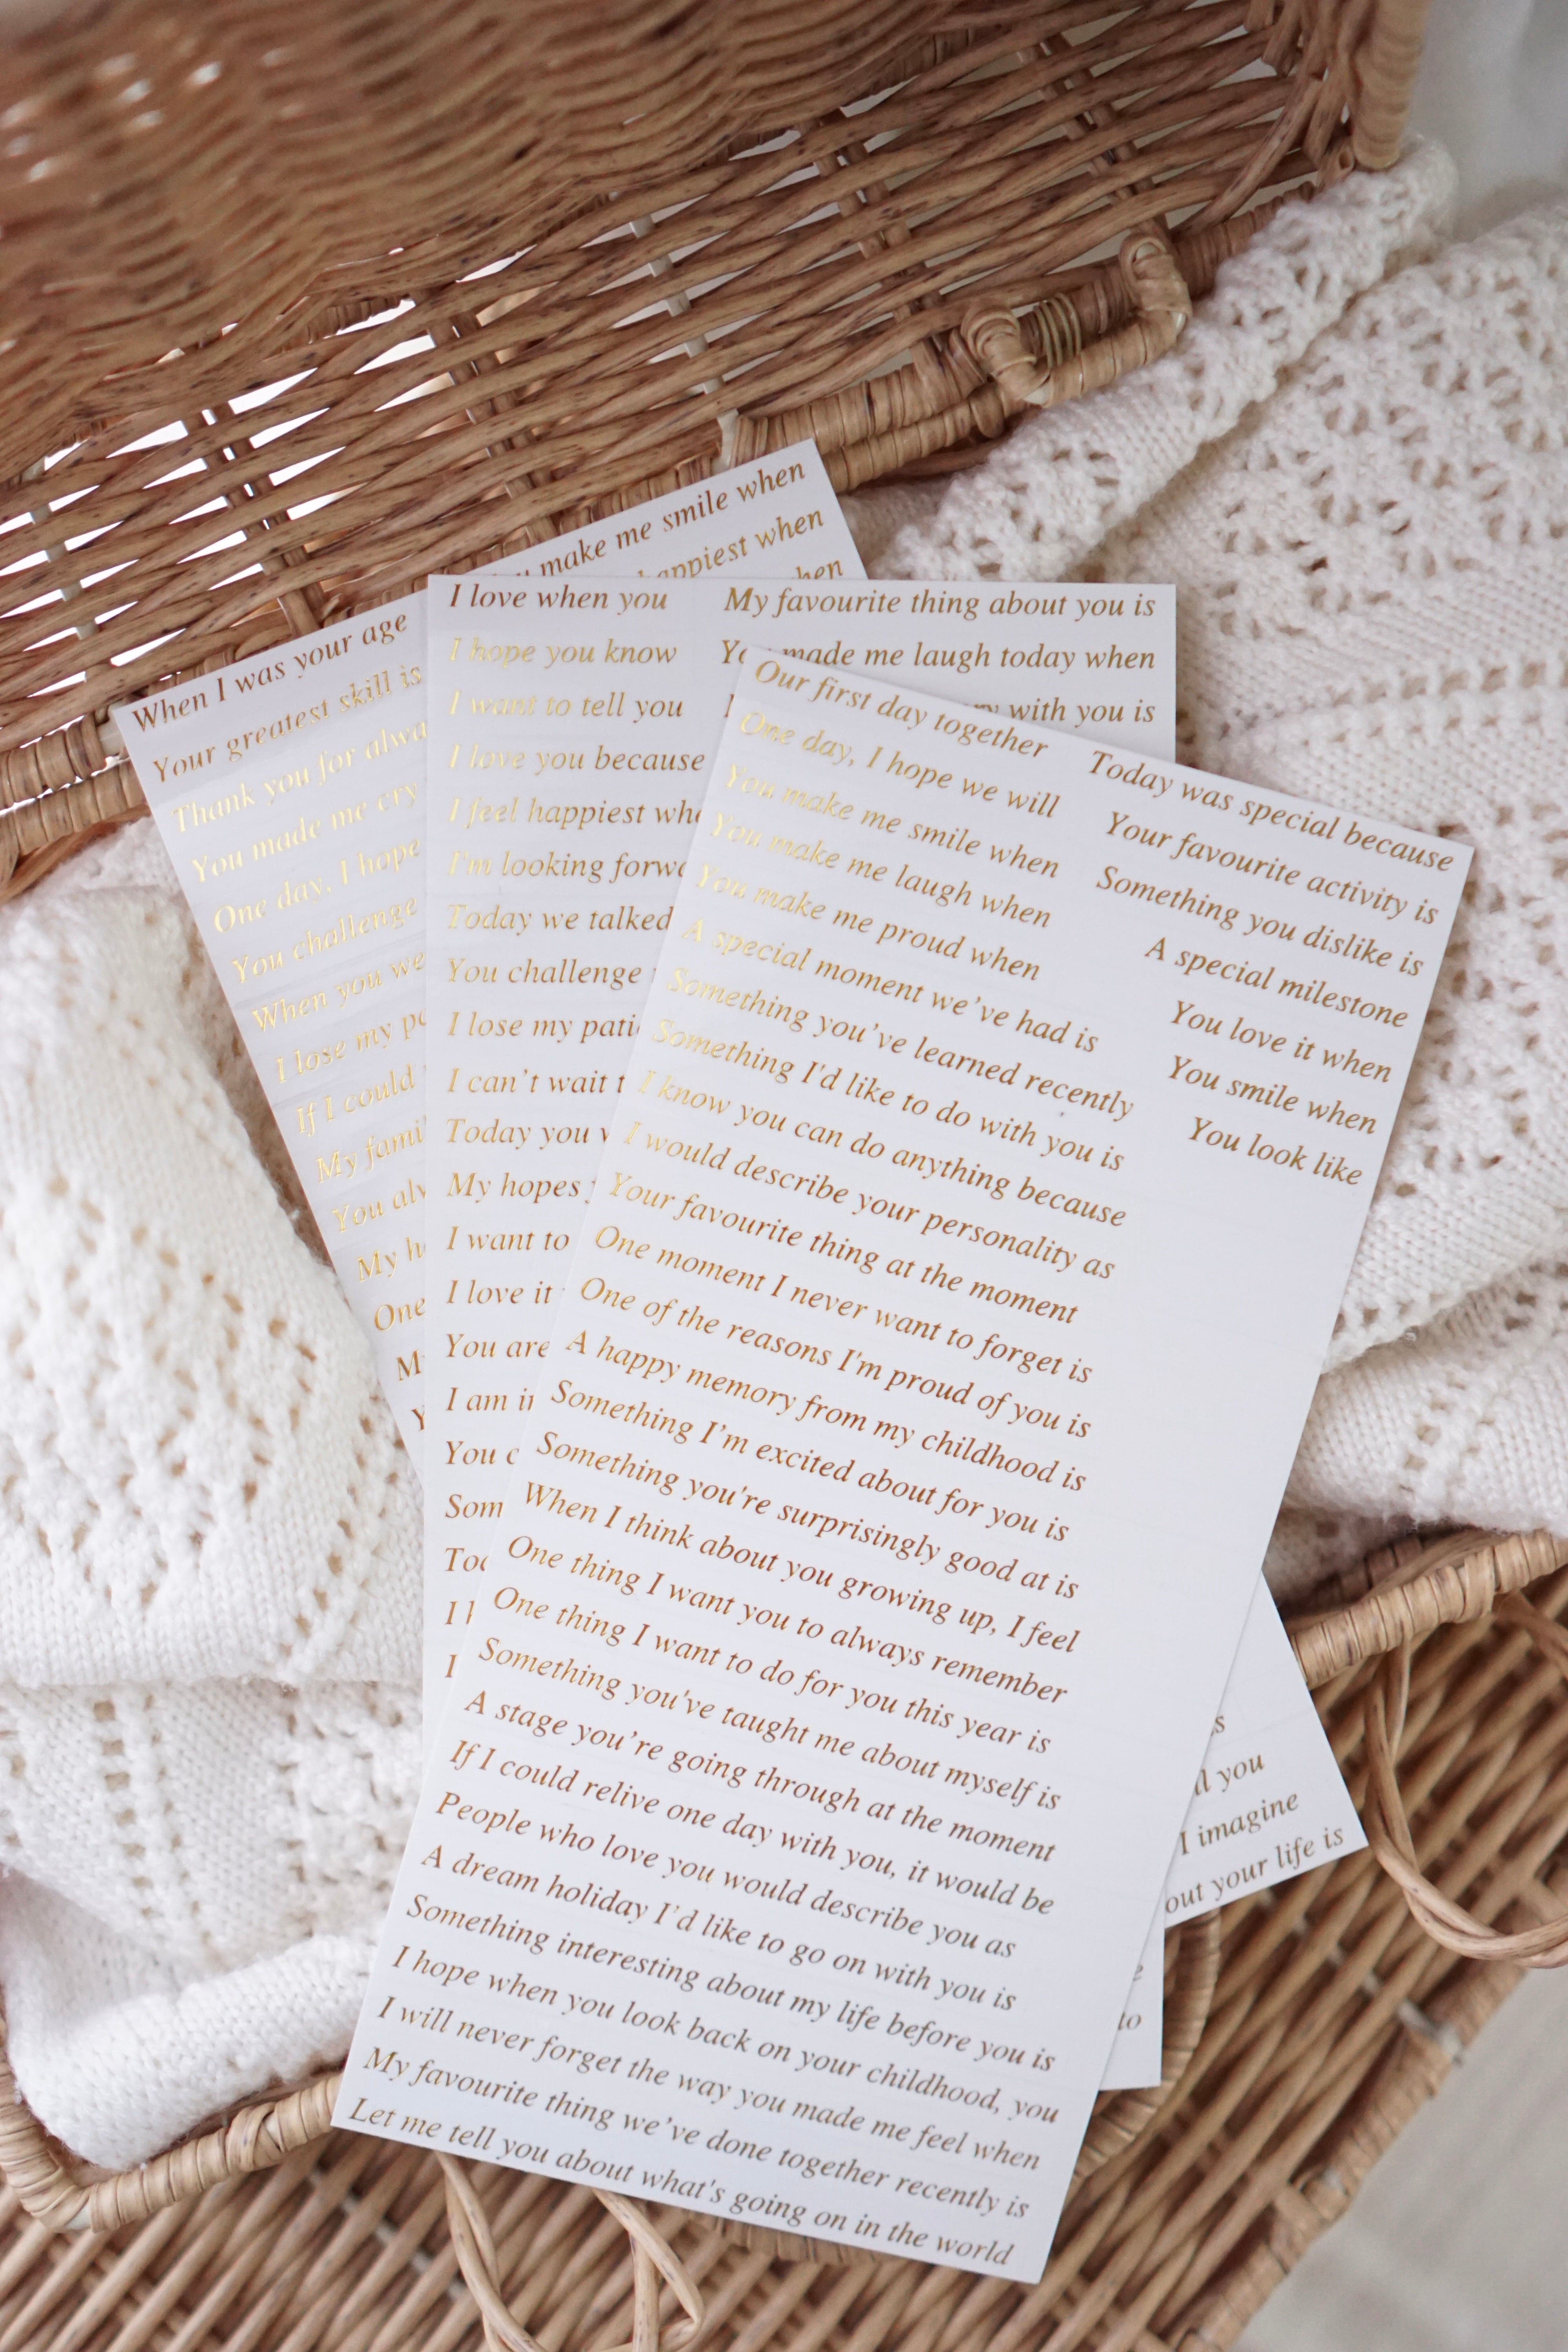 When I was your age
Your greatest skill is
Thank you for
You made me cry
One day, I hope
You challenge
When you
I lose my
If I could
My
You
My
One
make me smile when
happiest when
when
I love when you
I hope you know
I want to tell you
I love you because
I feel happiest
I'm looking
Today we talked
You challenge
I lose my
I can't wait
Today you
My hopes
I want to
I love it
You are
I am
You
I
I
My favourite thing about you is
You made me laugh today when
with you is
Our first day together
One day, I hope we will
You make me smile when
You make me laugh when
You make me proud when
A special moment we've had is
Something you've learned recently
Something I'd like to do with you is
I know you can do anything because
I would describe your personality as
Your favourite thing at the moment
One moment I never want to forget is
One of the reasons I'm proud of you is
A happy memory from my childhood is
Something I'm excited about for you is
Something you're surprisingly good at is
When I think about you growing up, I feel
One thing I want you to always remember
One thing I want to do for you this year is
Something you've taught me about myself is
A stage you're going through at the moment
If I could relive one day with you, it would be
People who love you would describe you as
A dream holiday I'd like to go on with you is
Something interesting about my life before you is
I hope when you look back on your childhood, you
I will never forget the way you made me feel when
My favourite thing we've done together recently is
Let me tell you about what's going on in the world
Today was special because
Your favourite activity is
Something you dislike is
A special milestone
You love it when
You smile when
You look like
you
I imagine
your life is
to